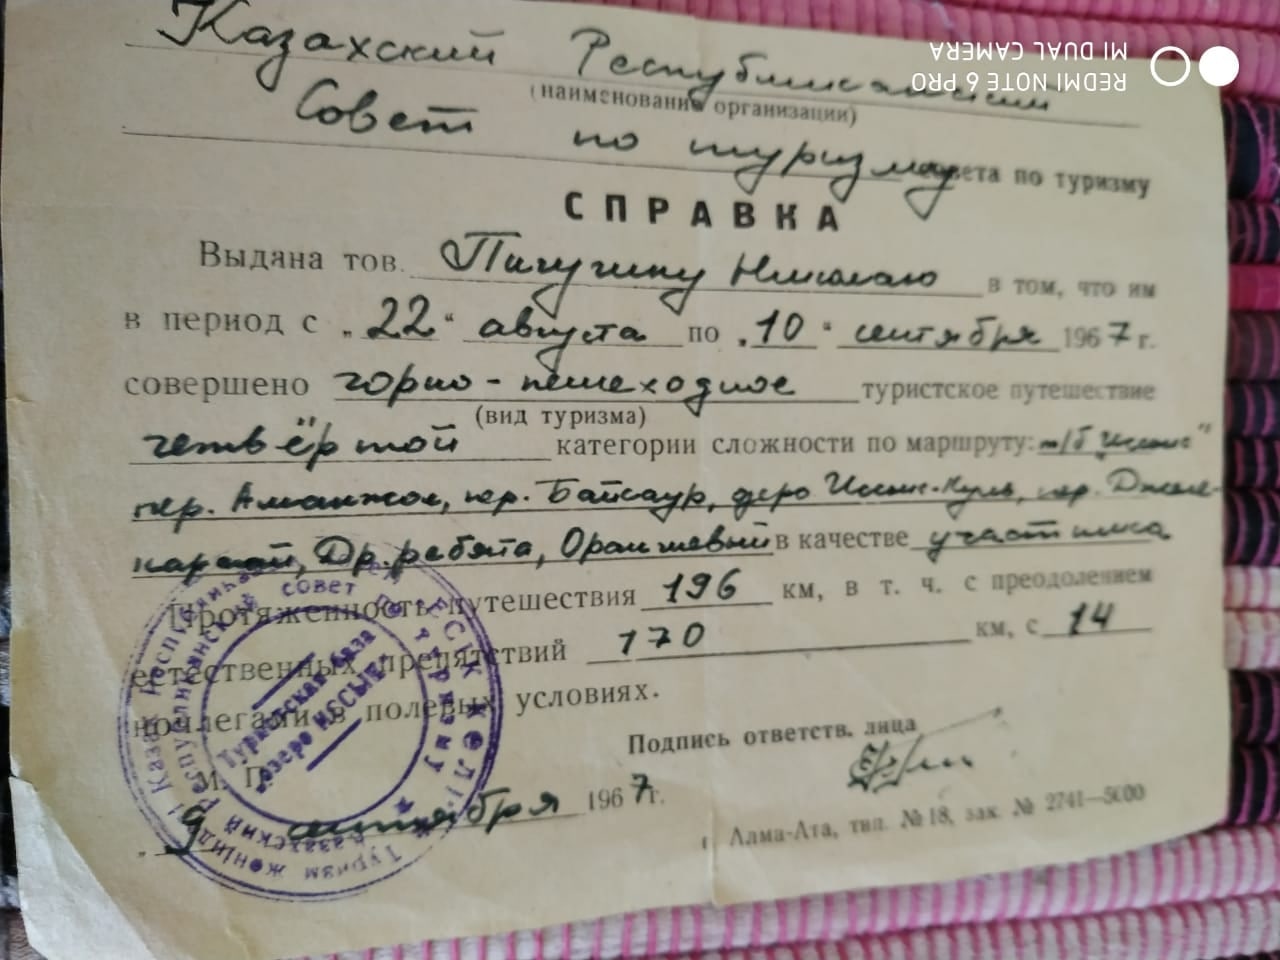 Казахский Республиканский
(наименование организации)
Совет по туризму совета по туризму
СПРАВКА
Выдана тов. Пичугину Николаю в том, что им
в период с „22“ августа по „10“ сентября 1967 г.
совершено горно-пешеходное туристское путешествие
(вид туризма)
четвёртой категории сложности по маршруту: т/б "Иссык"
пер. Аманжол, пер. Байсаур, озеро Иссык-Куль, пер.
Др. ребята, Оранжевый в качестве участника
Протяженность путешествия 196 км, в т. ч. с преодолением
естественных препятствий 170 км, с 14
ночлегами в полевых условиях.
Подпись ответств. лица
М. П.
„9 сентября 1967 г.
г. Алма-Ата, тип. № 18, зак. № 2741—5000
Туристская база
озеро ИССЫК
Казахский Республиканский совет по туризму
REDMI NOTE 6 PRO
MI DUAL CAMERA